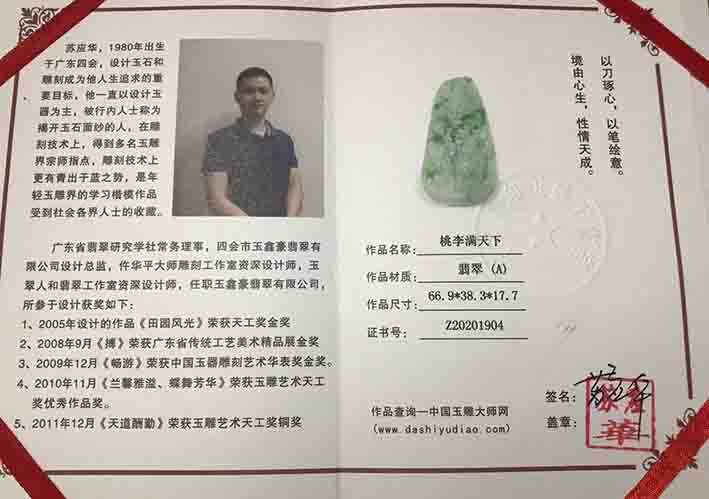 苏应华，1980年出生
于广东四会，设计玉石和
雕刻成为他人生追求的重
要目标，他一直以设计玉
器为主，被行内人士称为
揭开玉石面纱的人，在雕
刻技术上，得到多名玉雕
界宗师指点，雕刻技术上
更有青出于蓝之势，是年
轻玉雕界的学习楷模作品
受到社会各界人士的收藏。
广东省翡翠研究学社常务理事，四会市玉鑫豪翡翠有
限公司设计总监，仵华平大师雕刻工作室资深设计师，玉
翠人和翡翠工作室资深设计师，任职玉鑫豪翡翠有限公司，
所参于设计获奖如下：
1、2005年设计的作品《田园风光》荣获天工奖金奖
2、2008年9月《搏》荣获广东省传统工艺美术精品展金奖
3、2009年12月《畅游》荣获中国玉器雕刻艺术华表奖金奖。
4、2010年11月《兰馨雅溢、蝶舞芳华》荣获玉雕艺术天工
奖优秀作品奖。
5、2011年12月《天道酬勤》荣获玉雕艺术天工奖铜奖
以刀琢心，以笔绘意。
境由心生，性情天成。
作品名称：桃李满天下
作品材质：翡翠（A）
作品尺寸：66.9*38.3*17.7
证书号：Z20201904
签名：
盖章：
作品查询—中国玉雕大师网
(www.dashiyudiao.com)